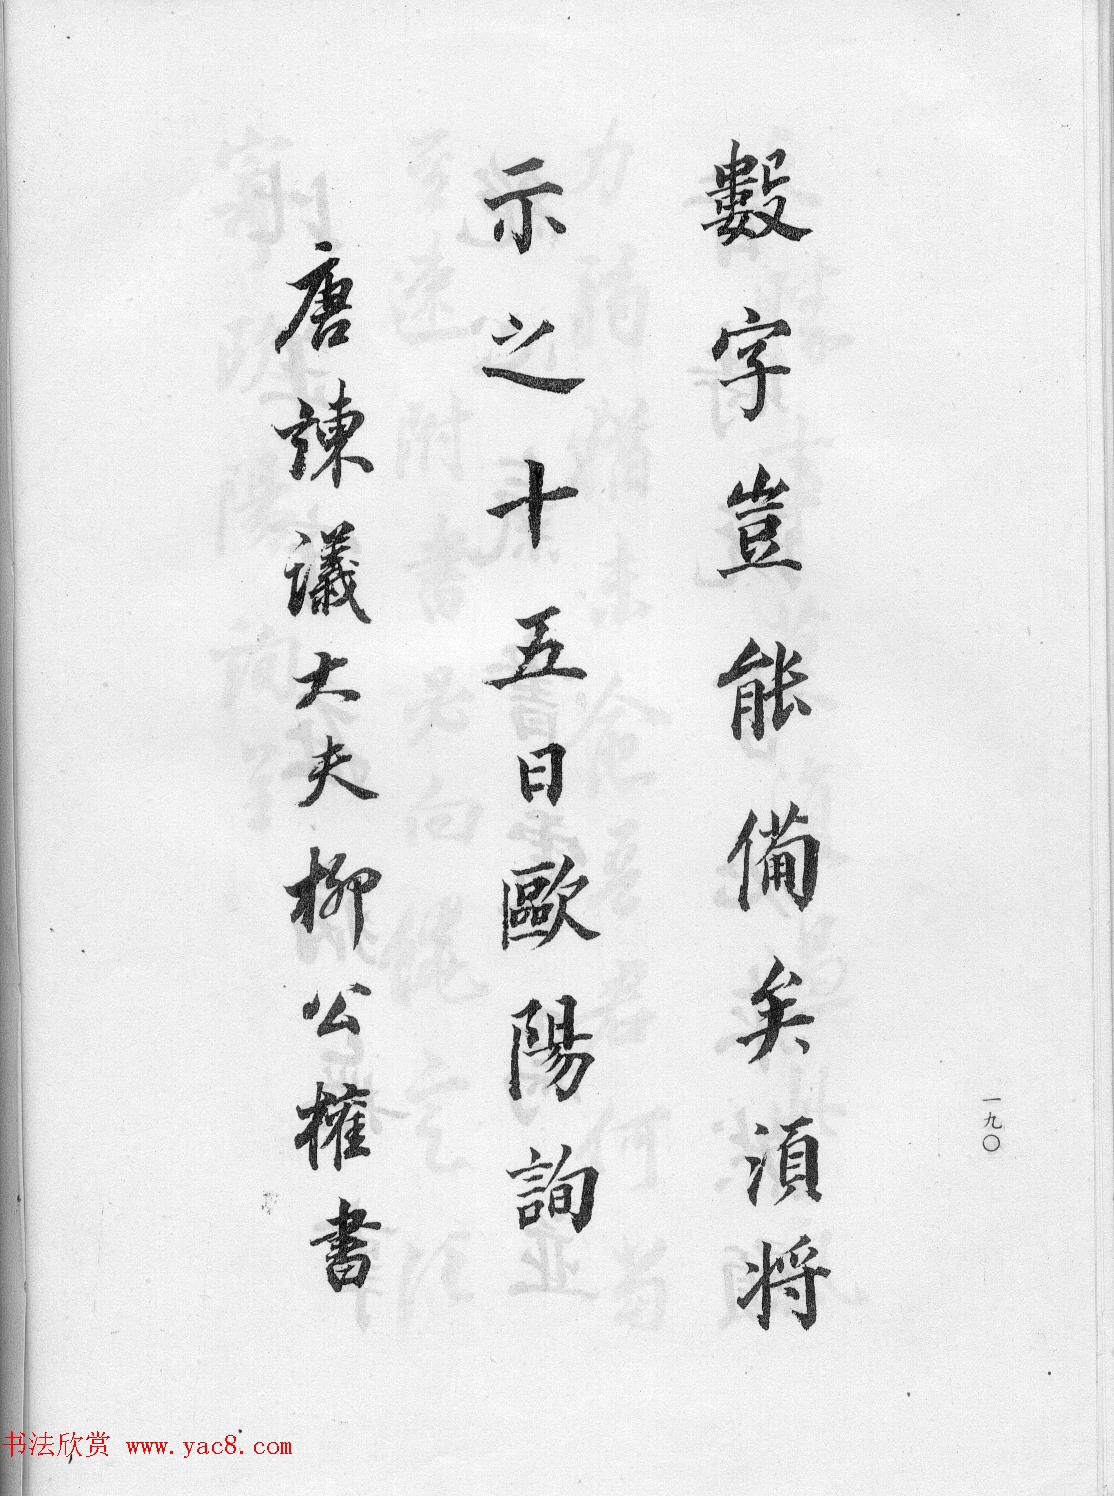 數字豈能備矣須將
示之十五日歐陽詢
唐諫議大夫柳公權書
一九〇
书法欣赏 www.yac8.com